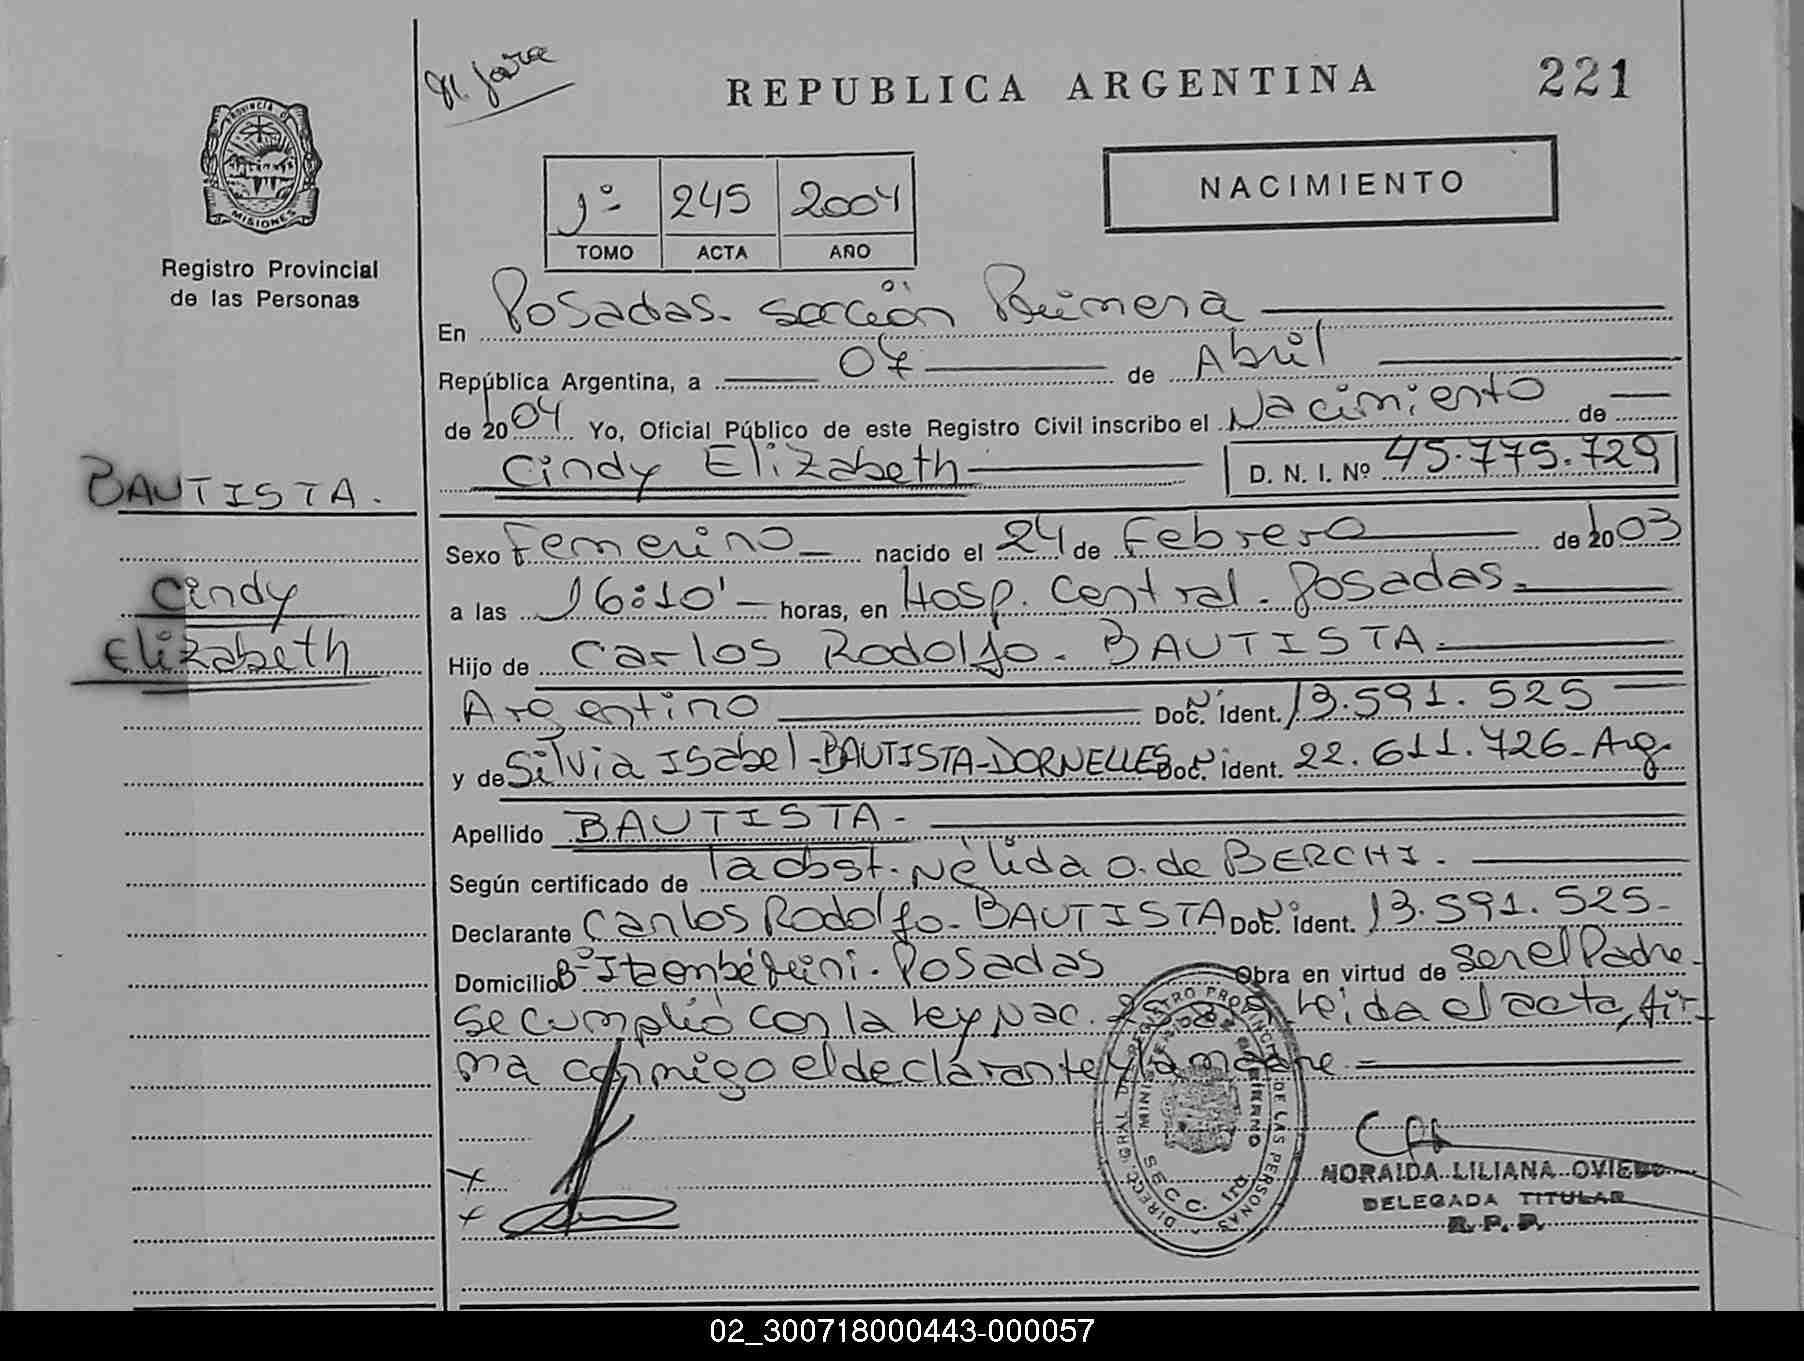 REPUBLICA ARGENTINA
221
PROVINCIA DE
MISIONES
Registro Provincial
de las Personas
NACIMIENTO
1º 245 2004
TOMO ACTA AÑO
En Posadas. sección Primera
República Argentina, a 07 de Abril
de 2004 Yo, Oficial Público de este Registro Civil inscribo el Nacimiento de
Cindy Elizabeth D. N. I. Nº 45.775.729
BAUTISTA.
Cindy
Elizabeth
Sexo Femenino nacido el 24 de Febrero de 2003
a las 16:10' horas, en Hosp. Central. Posadas.
Hijo de Carlos Rodolfo. BAUTISTA.
Argentino Doc. Ident. Nº 13.591.525
y de Silvia Isabel-BAUTISTA-DORNELLES Doc. Nº ident. 22.611.726-Arg.
Apellido BAUTISTA-
Según certificado de la obst. Nélida O. de BERCHI.
Declarante Carlos Rodolfo-BAUTISTA Doc. Nº ident. 13.591.525-
Domicilio Bº Itaembé Miní. Posadas Obra en virtud de ser el Padre-
Se cumplió con la Ley Nac. Leida el acta, fir-
ma conmigo el declarante y la madre.
NORAIDA LILIANA OVIEDO
DELEGADA TITULAR
R. P. P.
SECC. 1ra.
02_300718000443-000057